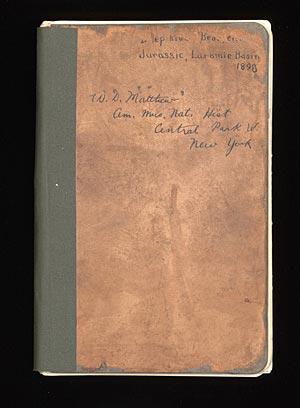 Jurassic, Laramie Basin
"W. D. Matthew"
Am. Mus. Nat. Hist
Central Park W.
New York